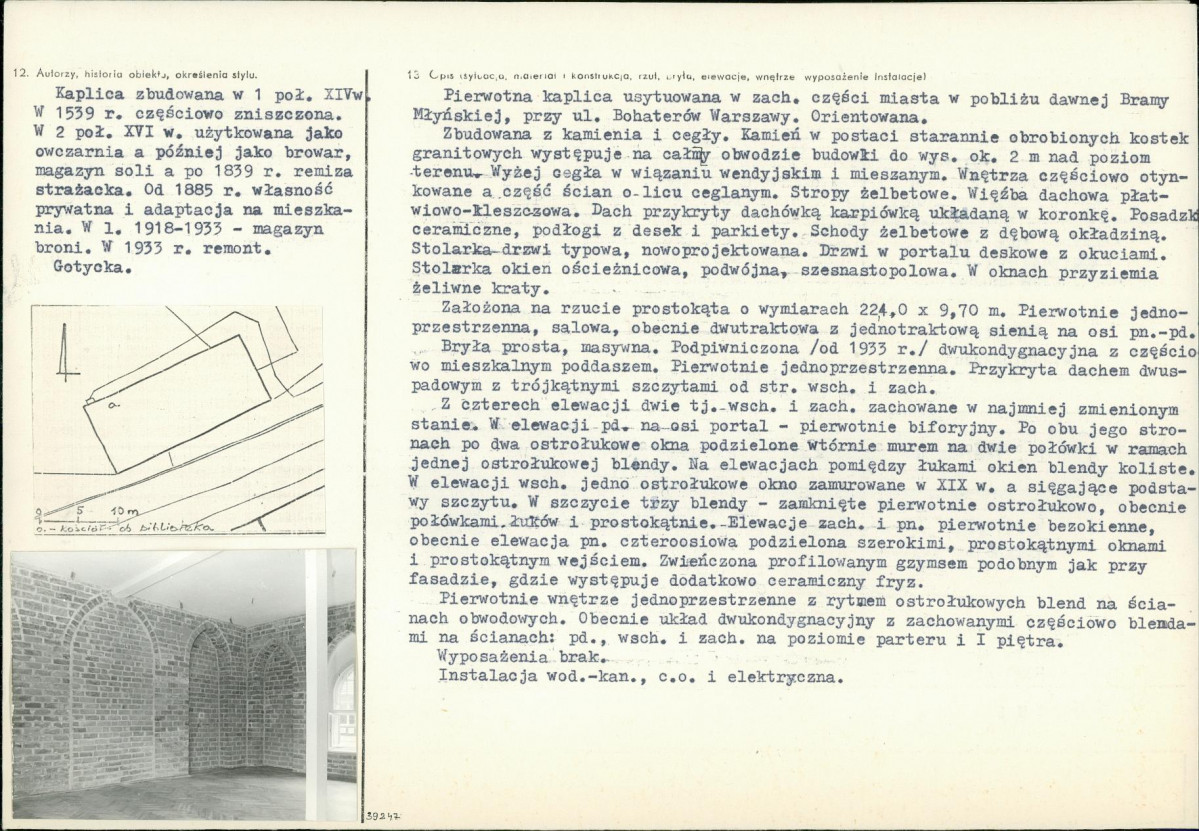 12. Autorzy, historia obiektu, określenia stylu.
Kaplica zbudowana w 1 poł. XIVw.
W 1539 r. częściowo zniszczona.
W 2 poł. XVI w. użytkowana jako
owczarnia a później jako browar,
magazyn soli a po 1839 r. remiza
strażacka. Od 1885 r. własność
prywatna i adaptacja na mieszka-
nia. W l. 1918-1933 - magazyn
broni. W 1933 r. remont.
Gotycka.
a.
0 5 10 m
a. - kościół ob. biblioteka
13 Opis (sytuacja, materiał i konstrukcja, rzut, bryła, elewacje, wnętrze wyposażenie instalacje)
Pierwotna kaplica usytuowana w zach. części miasta w pobliżu dawnej Bramy
Młyńskiej, przy ul. Bohaterów Warszawy. Orientowana.
Zbudowana z kamienia i cegły. Kamień w postaci starannie obrobionych kostek
granitowych występuje na całmy obwodzie budowli do wys. ok. 2 m nad poziom
terenu. Wyżej cegła w wiązaniu wendyjskim i mieszanym. Wnętrza częściowo otyn-
kowane a część ścian o licu ceglanym. Stropy żelbetowe. Więźba dachowa płat-
wiowo-kleszczowa. Dach przykryty dachówką karpiówką układaną w koronkę. Posadzk
ceramiczne, podłogi z desek i parkiety. Schody żelbetowe z dębową okładziną.
Stolarka drzwi typowa, nowoprojektowana. Drzwi w portalu deskowe z okuciami.
Stolarka okien ościeżnicowa, podwójna, szesnastopolowa. W oknach przyziemia
żeliwne kraty.
Założona na rzucie prostokąta o wymiarach 224,0 x 9,70 m. Pierwotnie jedno-
przestrzenna, salowa, obecnie dwutraktowa z jednotraktową sienią na osi pn.-pd.
Bryła prosta, masywna. Podpiwniczona /od 1933 r./ dwukondygnacyjna z częścio
wo mieszkalnym poddaszem. Pierwotnie jednoprzestrzenna. Przykryta dachem dwus-
padowym z trójkątnymi szczytami od str. wsch. i zach.
Z czterech elewacji dwie tj. wsch. i zach. zachowane w najmniej zmienionym
stanie. W elewacji pd. na osi portal - pierwotnie biforyjny. Po obu jego stro-
nach po dwa ostrołukowe okna podzielone wtórnie murem na dwie połówki w ramach
jednej ostrołukowej blendy. Na elewacjach pomiędzy łukami okien blendy koliste.
W elewacji wsch. jedno ostrołukowe okno zamurowane w XIX w. a sięgające podsta-
wy szczytu. W szczycie trzy blendy - zamknięte pierwotnie ostrołukowo, obecnie
połówkami łuków i prostokątnie. Elewacje zach. i pn. pierwotnie bezokienne,
obecnie elewacja pn. czteroosiowa podzielona szerokimi, prostokątnymi oknami
i prostokątnym wejściem. Zwieńczona profilowanym gzymsem podobnym jak przy
fasadzie, gdzie występuje dodatkowo ceramiczny fryz.
Pierwotnie wnętrze jednoprzestrzenne z rytmem ostrołukowych blend na ścia-
nach obwodowych. Obecnie układ dwukondygnacyjny z zachowanymi częściowo blenda-
mi na ścianach: pd., wsch. i zach. na poziomie parteru i I piętra.
Wyposażenia brak.
Instalacja wod.-kan., c.o. i elektryczna.
39247